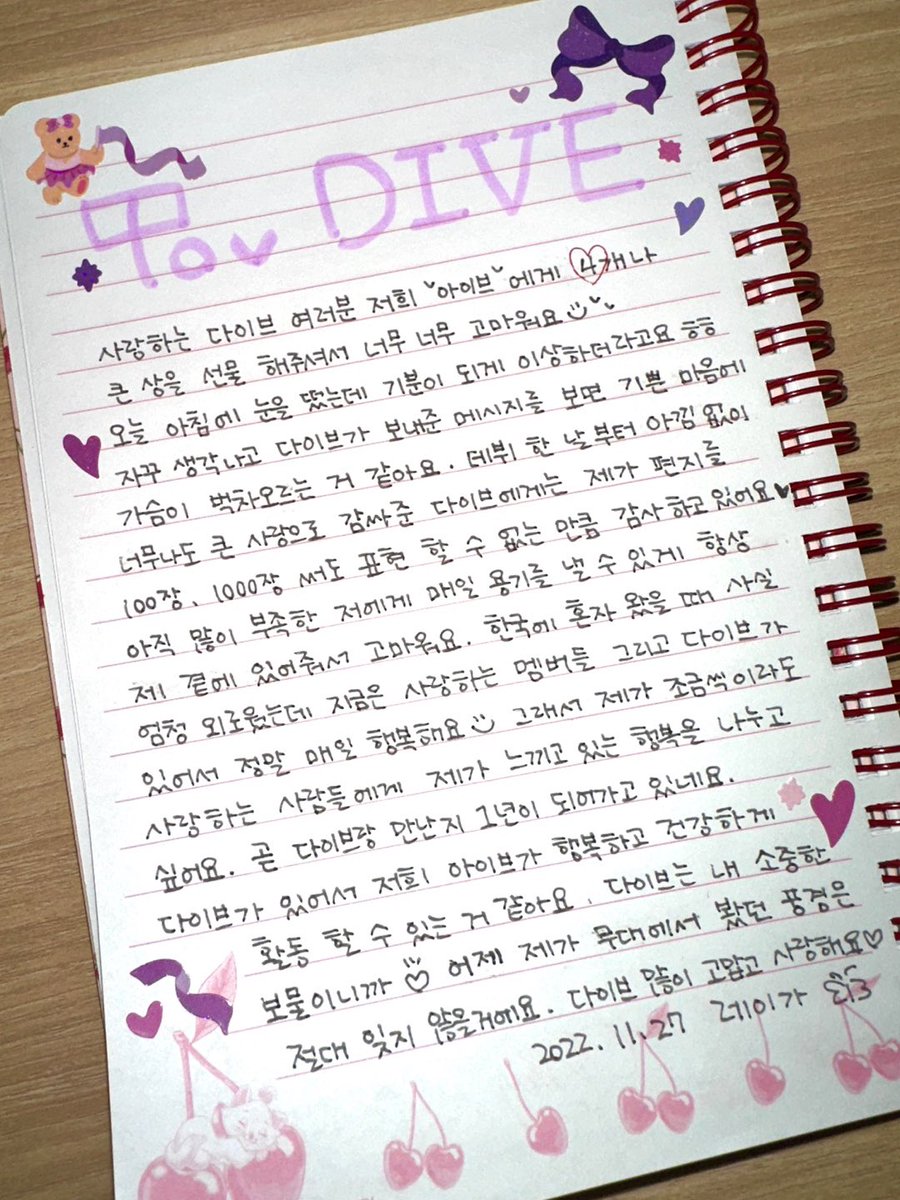 To. DIVE
사랑하는 다이브 여러분 저희 "아이브"에게 4개나
큰 상을 선물 해주셔서 너무 너무 고마워요
오늘 아침에 눈을 떴는데 기분이 되게 이상하더라고요 ㅎㅎ
자꾸 생각나고 다이브가 보내준 메시지를 보면 기쁜 마음에
가슴이 벅차오르는 거 같아요. 데뷔 한 날부터 아낌없이
너무나도 큰 사랑으로 감싸준 다이브에게는 제가 편지를
100장, 1000장 써도 표현 할 수 없는 만큼 감사하고있어요♥
아직 많이 부족한 저에게 매일 용기를 낼 수 있게 항상
제 곁에 있어줘서 고마워요. 한국에 혼자 왔을 때 사실
엄청 외로웠는데 지금은 사랑하는 멤버들 그리고 다이브가
있어서 정말 매일 행복해요 그래서 제가 조금씩이라도
사랑하는 사람들에게 제가 느끼고 있는 행복을 나누고
싶어요. 곧 다이브랑 만난지 1년이 되어가고 있네요.
다이브가 있어서 저희 아이브가 행복하고 건강하게
활동 할 수 있는 거 같아요. 다이브는 내 소중한
보물이니까 ♡ 어제 제가 무대에서 봤던 풍경은
절대 잊지 않을거에요. 다이브 많이 고맙고 사랑해요♡
2022. 11. 27 레이가